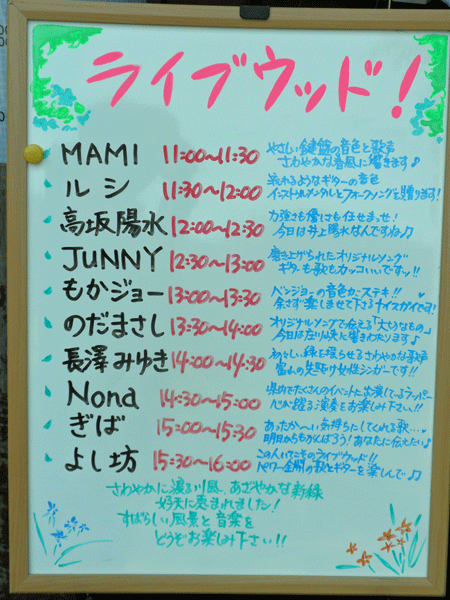 ライブウッド!
MAMI 11:00~11:30 やさしい鍵盤の音色と歌声
さわやかな春風に響きます♪
ルシ 11:30~12:00 流れるようなギターの音色
インストゥルメンタルとフォークソングを贈ります!
高坂陽水 12:00~12:30 力強さも優しさも任せませ!
今日は井上陽水なんですね♫
JUNNY 12:30~13:00 磨き上げられたオリジナルソング
ギターも歌もカッコいいですッ!!
もかジョー 13:00~13:30 バンジョーの音色がステキ!!
余さず楽しませて下さるナイスガイです!
のだまさし 13:30~14:00 オリジナルソングで伝える「大切なもの」
今日は左り快と響きわたります♪
長澤みゆき 14:00~14:30 初々しい緑を揺らせるさわやかな歌声
富山の先駆け女性シンガーです!!
Nona 14:30~15:00 県内でたくさんのイベントに出演してるラッパー
心が躍る演奏をお楽しみ下さい!!
ぎば 15:00~15:30 あったか~い気持ちにしてくれる歌…
明日からもがんばろう!あなたに伝えたい♪
よし坊 15:30~16:00 この人いてこそのライブウッド!!
パワー全開の歌とギターを楽しんで♫
さわやかに渡る川風、あざやかな新緑
好天に恵まれました!
すばらしい風景と音楽を
どうぞお楽しみ下さい!!